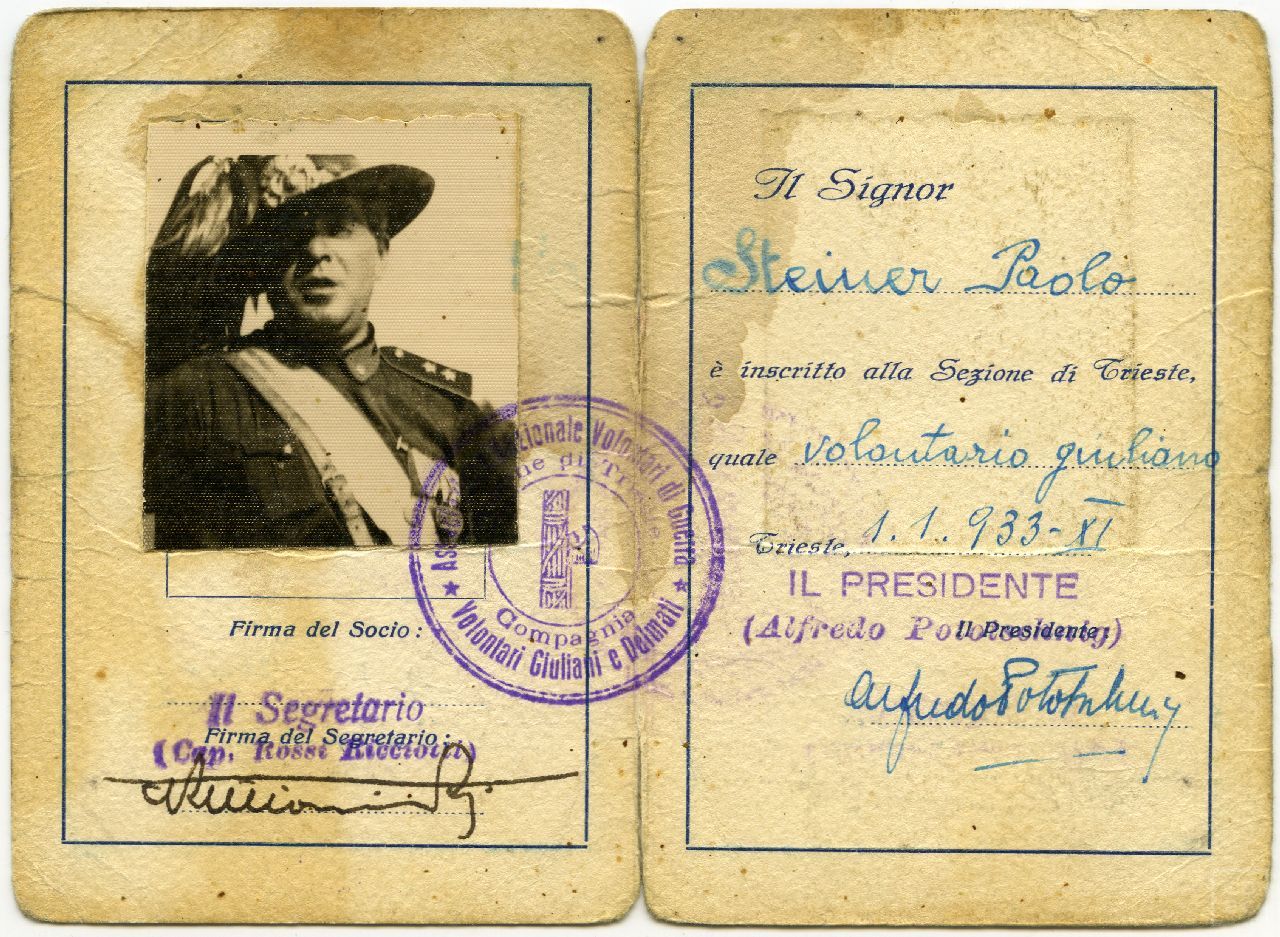 Associazione Nazionale Volontari di Guerra
Sezione di Trieste
Compagnia
★ Volontari Giuliani e Dalmati ★
Firma del Socio:
Il Segretario
Firma del Segretario:
(Cap. Rossi Ricciotti)
Il Signor
Steiner Paolo
è inscritto alla Sezione di Trieste,
quale volontario giuliano
Trieste, 1.1.933-XI
IL PRESIDENTE
Il Presidente:
(Alfredo Pototschnig)
Alfredo Pototschnig